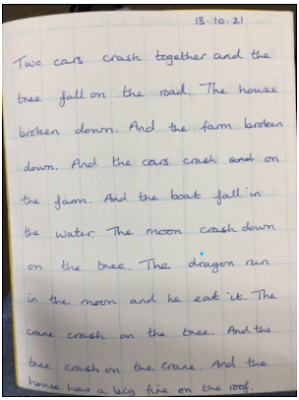 13.10.21
Two cars crash together and the
tree fall on the road. The house
broken down. And the farm broken
down. And the cars crash and on
the farm. And the boat fall in
the water. The moon crash down
on the tree. The dragon run
in the moon and he eat it. The
crane crash on the tree. And the
tree crash on the crane. And the
house has a big fire on the roof.